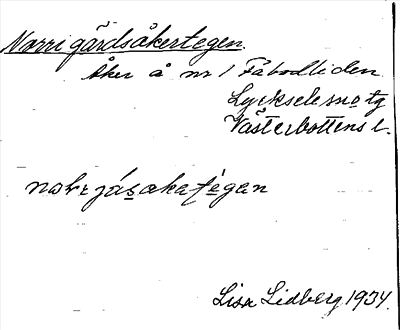 Norrigårdsåkertegen.
Åker å nr 1 Fäbodliden
Lycksele sn o tg
Västerbottens l.
Lisa Lidberg 1934.